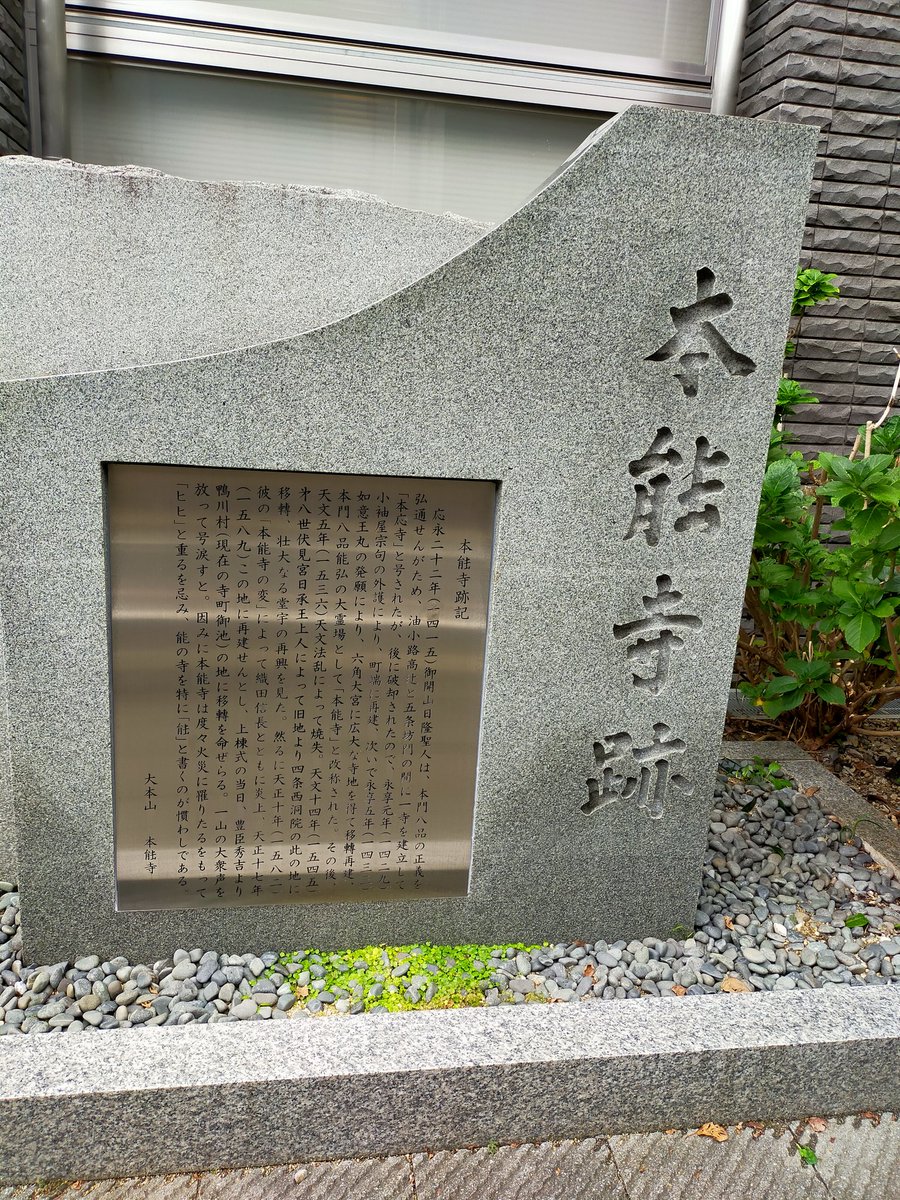 本能寺跡
本能寺跡記
応永二十二年(一四一五)御開山日隆聖人は、本門八品の正義を
弘通せんがため、油小路高辻と五条坊門の間に一寺を建立して
「本応寺」と号されたが、後に破却されたので、永享元年(一四二九)
小袖屋宗句の外護により、町端に再建、次いで永享五年(一四三三)
如意王丸の発願により、六角大宮に広大な寺地を得て移轉再建、
本門八品能弘の大霊場として「本能寺」と改称された。その後、
天文五年(一五三六)天文法乱によって焼失。天文十四年(一五四五)
㐧八世伏見宮日承王上人によって旧地より四条西洞院の此の地に
移轉、壮大なる堂宇の再興を見た。然るに天正十年(一五八二)
彼の「本能寺の変」によって織田信長とともに炎上、天正十七年
(一五八九)この地に再建せんとし、上棟式の当日、豊臣秀吉より
鴨川村(現在の寺町御池)の地に移轉を命ぜらる。一山の大衆声を
放って号涙すと。因みに本能寺は度々火災に罹りたるをもって
「ヒヒ」と重るを忌み、能の寺を特に「䏻」と書くのが慣わしである。
大本山 本能寺